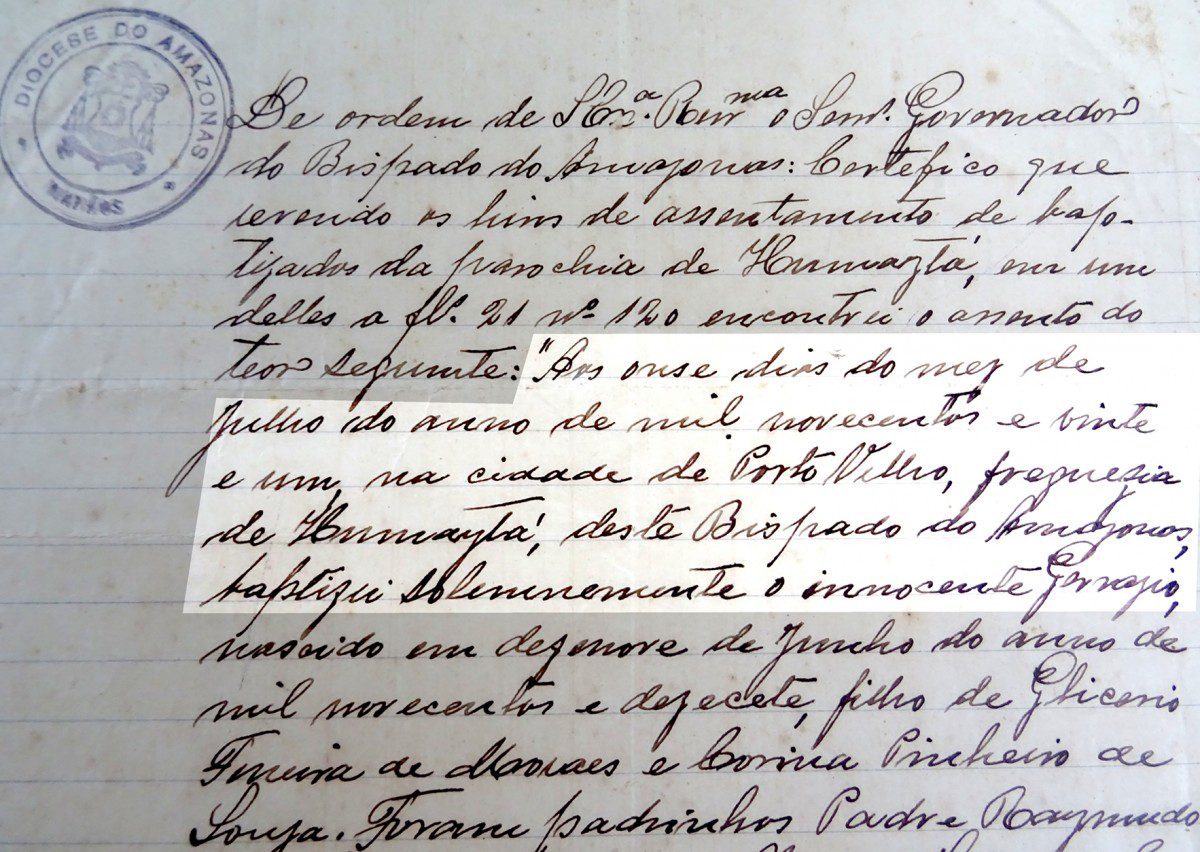 DIOCESE DO AMAZONAS
MANAOS
De ordem de S Exª. Revma o Senr. Governador
do Bispado do Amazonas: Certefico que
revendo os livros de assentamento de bap-
tizados da parochia de Humaytá, em um
delles a fls. 21 nº 120 encontrei o assento do
teor seguinte: "Aos onse dias do mez de
Julho do anno de mil novecentos e vinte
e um, na cidade de Porto Velho, freguezia
de Humaytá, deste Bispado do Amazonas,
baptizei solemnemente o innocente Gervazio,
nascido em dezenove de Junho do anno de
mil novecentos e dezecete, filho de Glicerio
Ferreira de Moraes e Corina Pinheiro de
Souza. Foram padrinhos Padre Raymundo